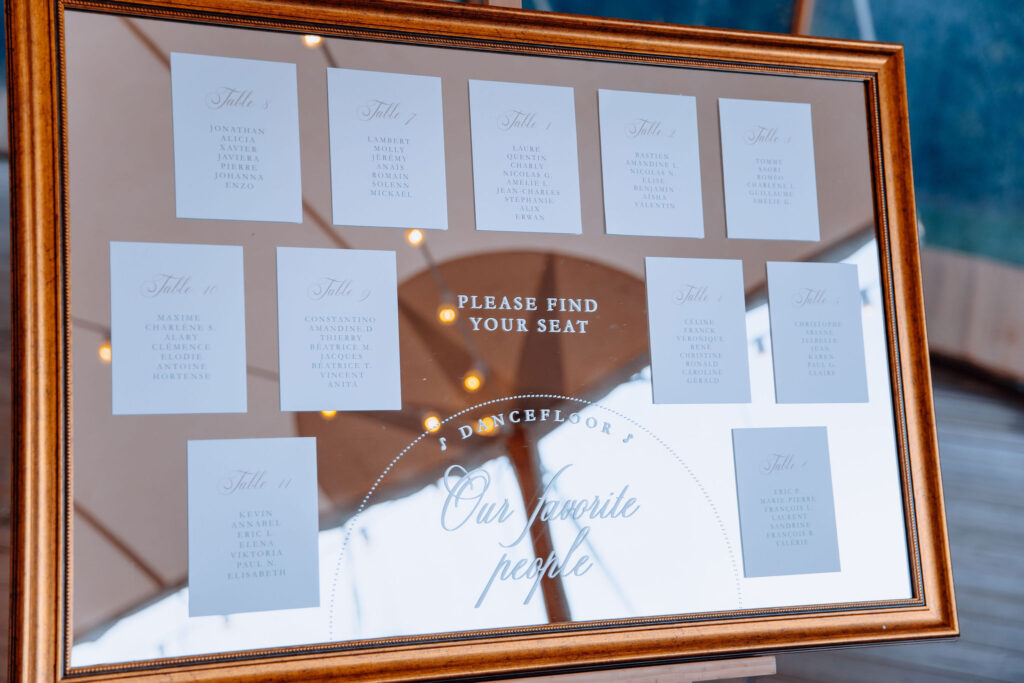 Table 8
JONATHAN
ALICIA
XAVIER
JAVIERA
PIERRE
JOHANNA
ENZO
Table 7
LAMBERT
MOLLY
JÉRÉMY
ANAÏS
ROMAIN
SOLENN
MICKAËL
Table 1
LAURE
QUENTIN
CHARLY
NICOLAS G.
AMÉLIE L.
JEAN-CHARLES
STÉPHANIE
ALIX
ERWAN
Table 2
BASTIEN
AMANDINE L.
NICOLAS N.
ELISE
BENJAMIN
AÏSHA
VALENTIN
Table 3
TOMMY
SAORI
ROMÉO
CHARLÈNE L.
GUILLAUME
AMÉLIE G.
Table 10
MAXIME
CHARLÈNE S.
ALARY
CLÉMENCE
ELODIE
ANTOINE
HORTENSE
Table 9
CONSTANTINO
AMANDINE D
THIERRY
BÉATRICE M.
JACQUES
BÉATRICE T.
VINCENT
ANITA
PLEASE FIND
YOUR SEAT
Table 4
CÉLINE
FRANCK
VÉRONIQUE
RENÉ
CHRISTINE
RONALD
CAROLINE
GÉRALD
Table 5
CHRISTOPHE
ARIANE
ISABELLE
JEAN
KAREN
PAUL G.
CLAIRE
Table 11
KEVIN
ANNABEL
ERIC L.
ELENA
VIKTORIA
PAUL N.
ELISABETH
DANCEFLOOR
Our favorite
people
Table
ERIC P.
MARIE-PIERRE
FRANÇOIS L.
LAURENT
SANDRINE
FRANÇOIS R.
VALÉRIE